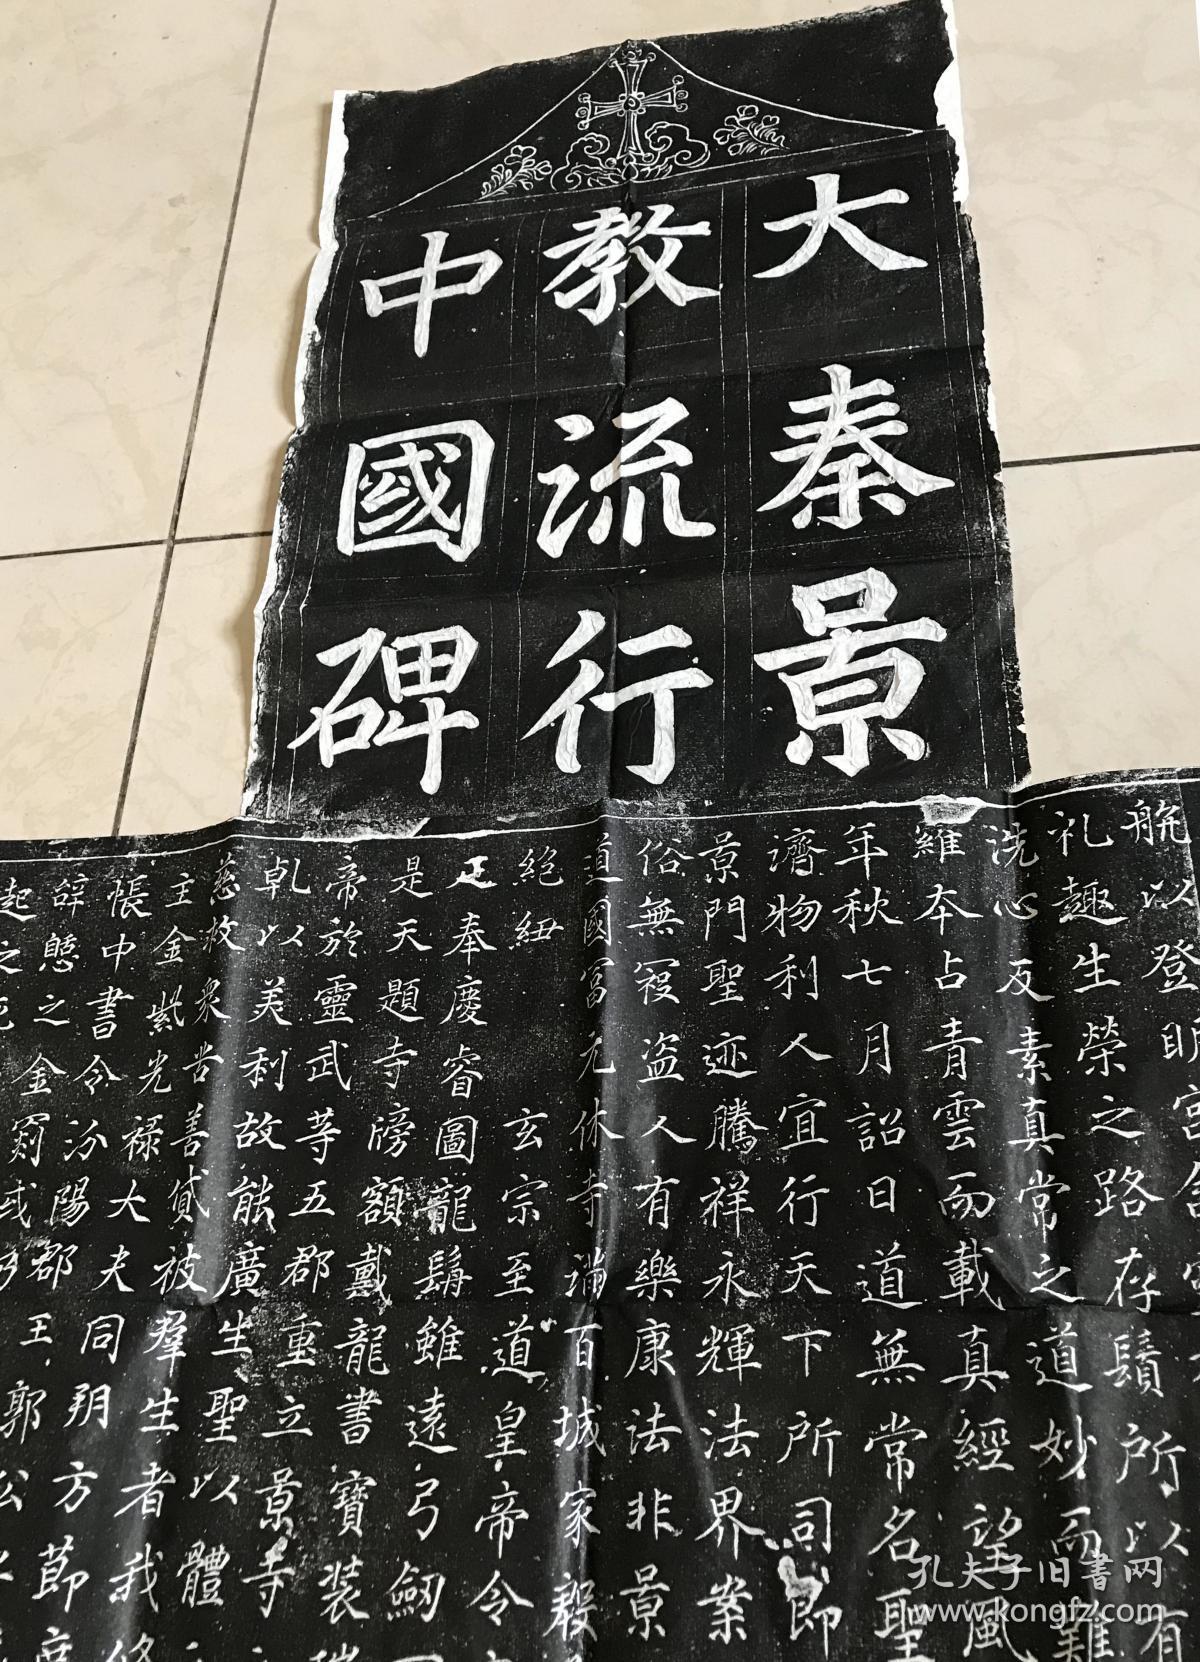 大秦景
教流行
中國碑
艈以登明宮
礼趣生榮之路存鬚所以有
洗心反素真常之道妙而難
維夲占青雲而載真經望風
年秋七月詔曰道無常名聖
濟物利人宜行天下所司即
景門聖迹騰祥永輝法界案
俗無寇盗人有樂康法非景
道國富元休寺滿百城家殷
絕紐 玄宗至道皇帝令
正奉慶睿圖龍髯雖遠弓劒
是天題寺牓額戴龍書寶裝
帝於靈武等五郡重立景寺
乹以美利故能廣生聖以體
慈救衆苦善貸被羣生者我
主金紫光祿大夫同朔方節
帳中書令汾陽郡王郭
辝憩之金罽或
起之
孔夫子旧书网
www.kongfz.com